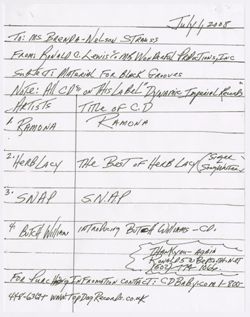 July 1, 2008
To: Ms Brenda-Nelson Strauss
From: Ronald C. Lewis - MG Wonderful Productions, Inc
Subject: Material For Black Grooves
Note: All CD's on This Label "Dynamic Imperial Records"
Artists Title of CD
1. Ramona Ramona
2. Herb Lacy The Best of Herb Lacy (Singer Songwriter)
3. SNAP SNAP
4. Butch William Introducing Butch Williams - CD.
Thank you again
For Purchasing Information contact: CDBaby.com 1-800-
448-6369 www.TopDogRecords.co.uk